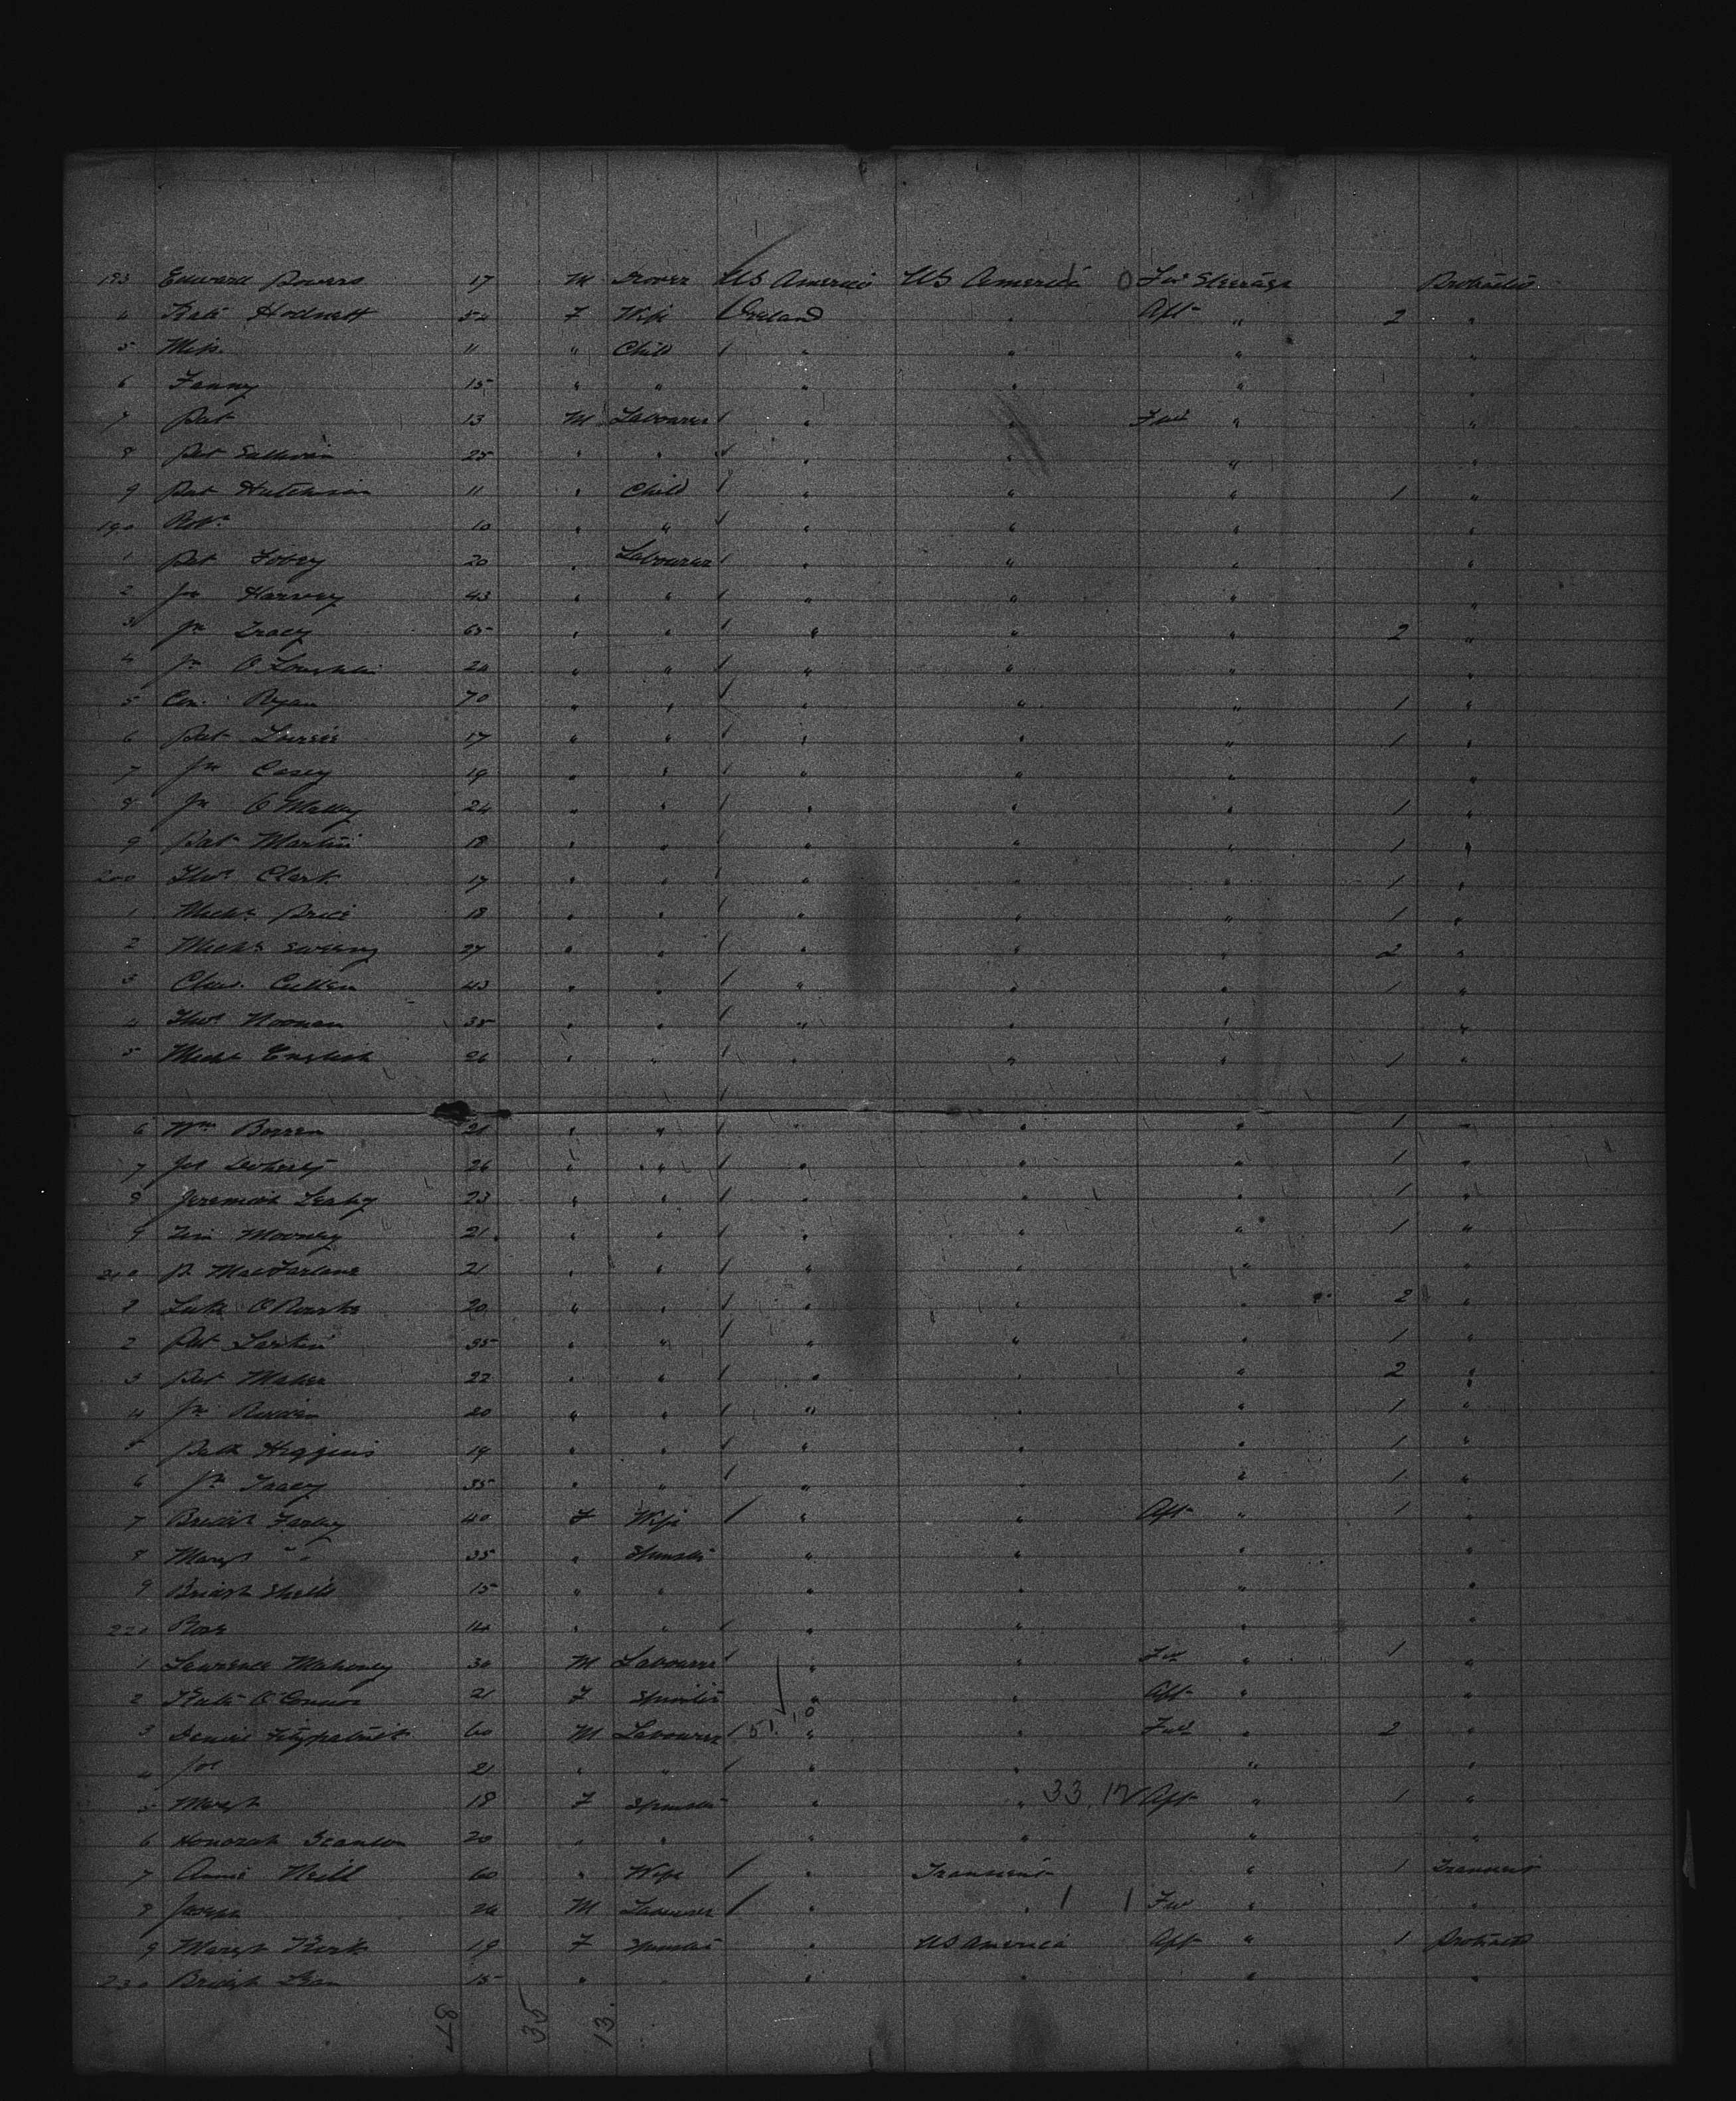 183 Edward Powers 17 M Grover US America US America 0 Fwd Steerage Protracted
4 Kate Hodnett 54 F Wife Ireland " Aft " 2 "
5 11 " Child " " " "
6 Fanny 15 " " " " " "
7 Pat 13 M Labourer " " Fwd " "
8 Pat Sullivan 25 " " " " " "
9 Pat Hutchison 11 " Child " " " 1 "
190 Robt 10 " " " " " "
1 Pat Tobey 20 " Labourer " " " "
2 Jn Harvey 43 " " " " " "
3 Jn Tracy 65 " " " " " 2 "
4 Jn O'Loughlin 24 " " " " " "
5 Con. Ryan 70 " " " " " 1 "
6 Pat 17 " " " " " 1 "
7 Jn Casey 19 " " " " " "
8 Jn O'Malley 24 " " " " " 1 "
9 Pat Martin 18 " " " " " 1 "
200 Thos Clark 17 " " " " " 1 "
1 Michl Price 18 " " " " " 1 "
2 Michl Sweeny 27 " " " " " 2 "
3 Chas. Cullen 43 " " " " " 1 "
4 Thos Noonan 35 " " " " " "
5 Michl English 26 " " " " " 1 "
6 Wm 21 " " " " " 1 "
7 Jas Doherty 26 " " " " " 1 "
8 Jeremiah Leahy 23 " " " " " 1 "
9 Tim Mooney 21 " " " " " 1 "
210 P. MacFarlane 21 " " " " " "
1 Luke O'Rourke 20 " " " " " 2 "
2 Pat Larkin 35 " " " " " 1 "
3 Pat Maher 22 " " " " " 2 "
4 Jn 20 " " " " " 1 "
5 Patk Higgins 19 " " " " " 1 "
6 Jn Tracy 35 " " " " " 1 "
7 Bridgt Farley 40 F Wife " " Aft " 1 "
8 Margt " 35 " Spinster " " " "
9 Bridgt Shiels 15 " " " " " "
220 Rose 14 " " " " " "
1 Lawrence Mahoney 30 M Labourer " " Fwd " 1 "
2 Kate O'Connor 21 F Spinster " " Aft " "
3 Daniel Fitzpatrick 60 M Labourer 51 " " Fwd " 2 "
4 Jas 21 " " " " " "
5 Margt 18 F Spinster " " 33 12 Aft " 1 "
6 Honorah Scanlon 20 " " " " " "
7 Annie Neill 60 " Wife " Transient " 1 Transient
8 Joseph 24 M Labourer " " Fwd " "
9 Margt Kirk 19 F Spinster " US America Aft " 1 Protracted
230 Bridgt 15 " " " " " "
48 35 13.